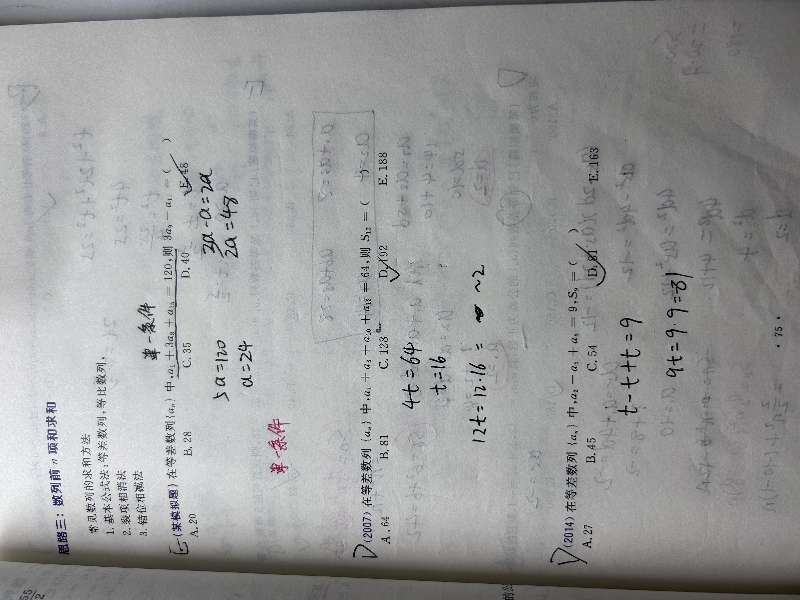 思路三：数列前 n 项和求和
常见数列的求和方法
1. 基本公式法：等差数列，等比数列，
2. 裂项相消法
3. 错位相减法
单一条件
(某模拟题) 在等差数列{aₙ}中，a₁＋3a₈＋a₁₅＝120，则 3a₉－a₁₁＝(  )
A. 20 B. 28 C. 35 D. 40 E. 48
5a=120 3a-a=2a
a=24 2a=48
单一条件
(2007) 在等差数列{aₙ}中，a₂＋a₃＋a₁₀＋a₁₁＝64，则 S₁₂＝(  )
A. 64 B. 81 C. 128 D. 192 E. 188
4t=64
t=16
12t=12·16= ~2
(2014) 在等差数列{aₙ}中，a₂－a₅＋a₈＝9，S₉＝(  )
A. 27 B. 45 C. 54 D. 81 E. 163
t-t+t=9
9t=9·9=81
· 75 ·